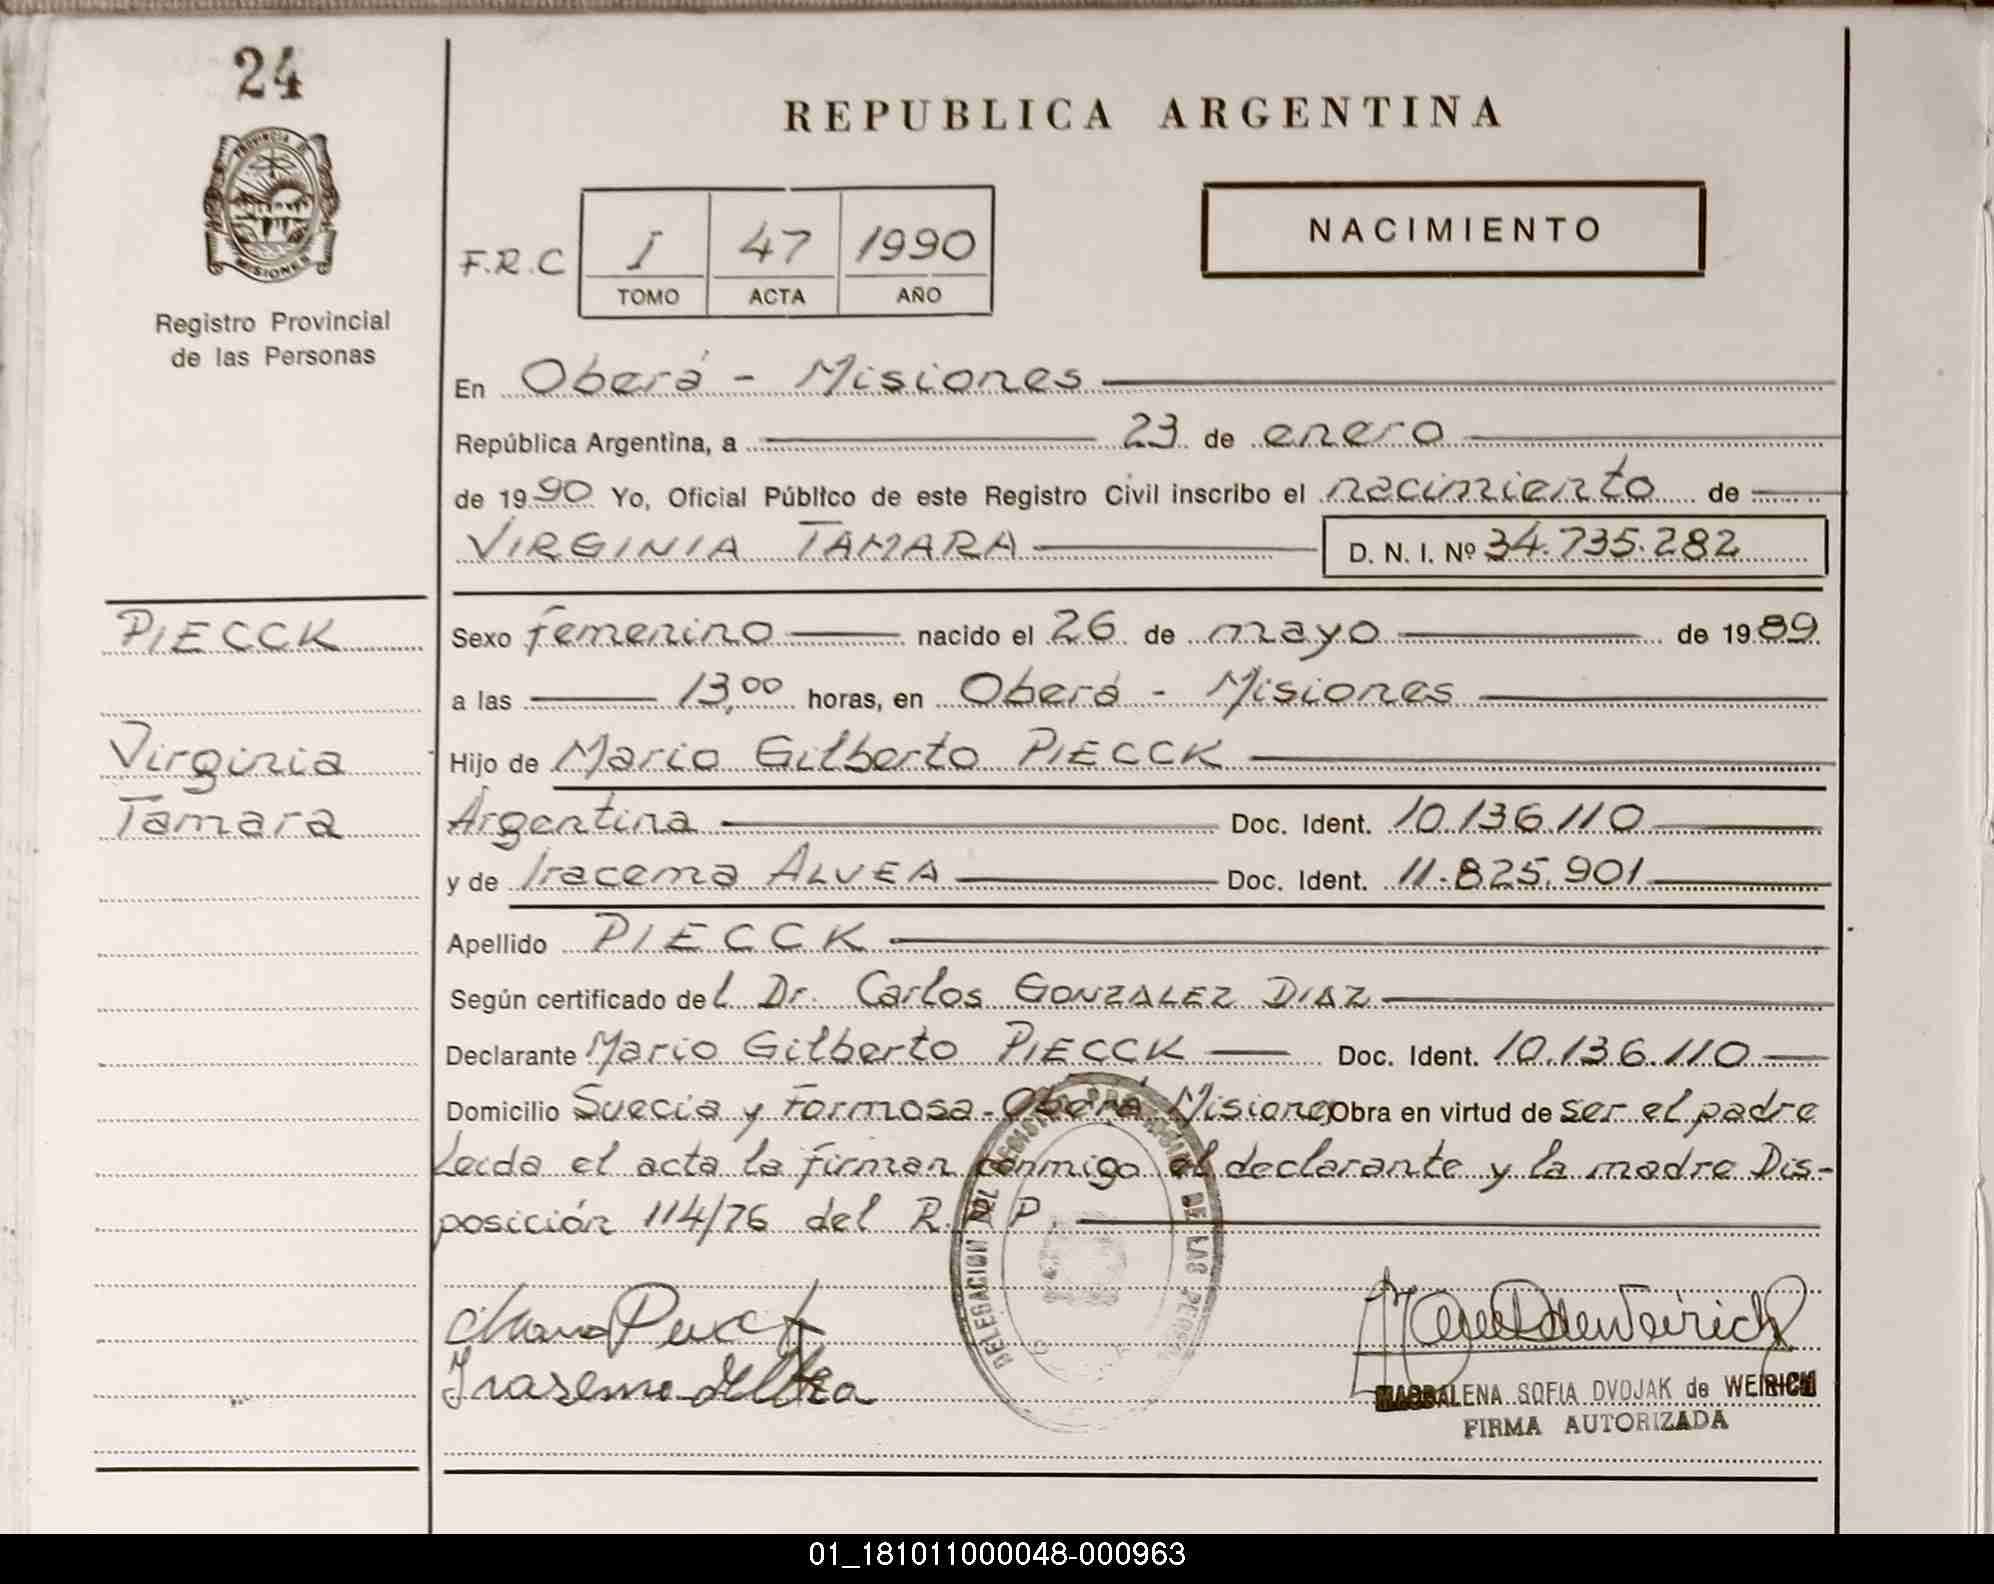 24
PROVINCIA D
MISIONES
Registro Provincial
de las Personas
REPUBLICA ARGENTINA
F.R.C
I 47 1990
TOMO ACTA AÑO
NACIMIENTO
En Oberá - Misiones
República Argentina, a 23 de enero
de 1990 Yo, Oficial Público de este Registro Civil inscribo el nacimiento de
VIRGINIA TAMARA D. N. I. Nº 34.735.282
PIECCK
Virginia
Tamara
Sexo femenino nacido el 26 de mayo de 1989
a las 13,00 horas, en Oberá - Misiones
Hijo de Mario Gilberto PIECCK
Argentina Doc. Ident. 10.136.110
y de Iracema ALVEA Doc. Ident. 11.825.901
Apellido PIECCK
Según certificado del Dr. Carlos GONZALEZ DIAZ
Declarante Mario Gilberto PIECCK Doc. Ident. 10.136.110
Domicilio Suecia y Formosa - Oberá Misiones Obra en virtud de ser el padre
Leída el acta la firman conmigo el declarante y la madre Dis-
posición 114/76 del R.R.P.
DELEGACION DEL REGISTRO PROVINCIAL DE LAS
MAGDALENA SOFIA DVOJAK de WEIRICH
FIRMA AUTORIZADA
01_181011000048-000963